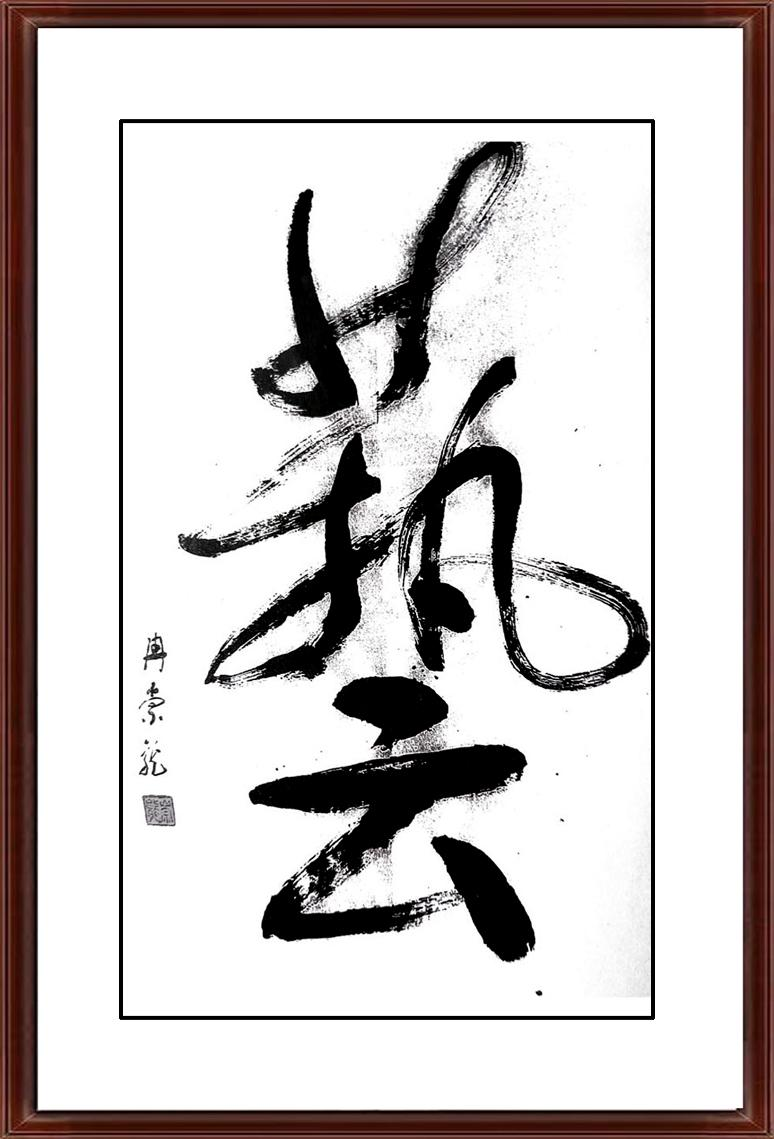 藝
冉崇龍